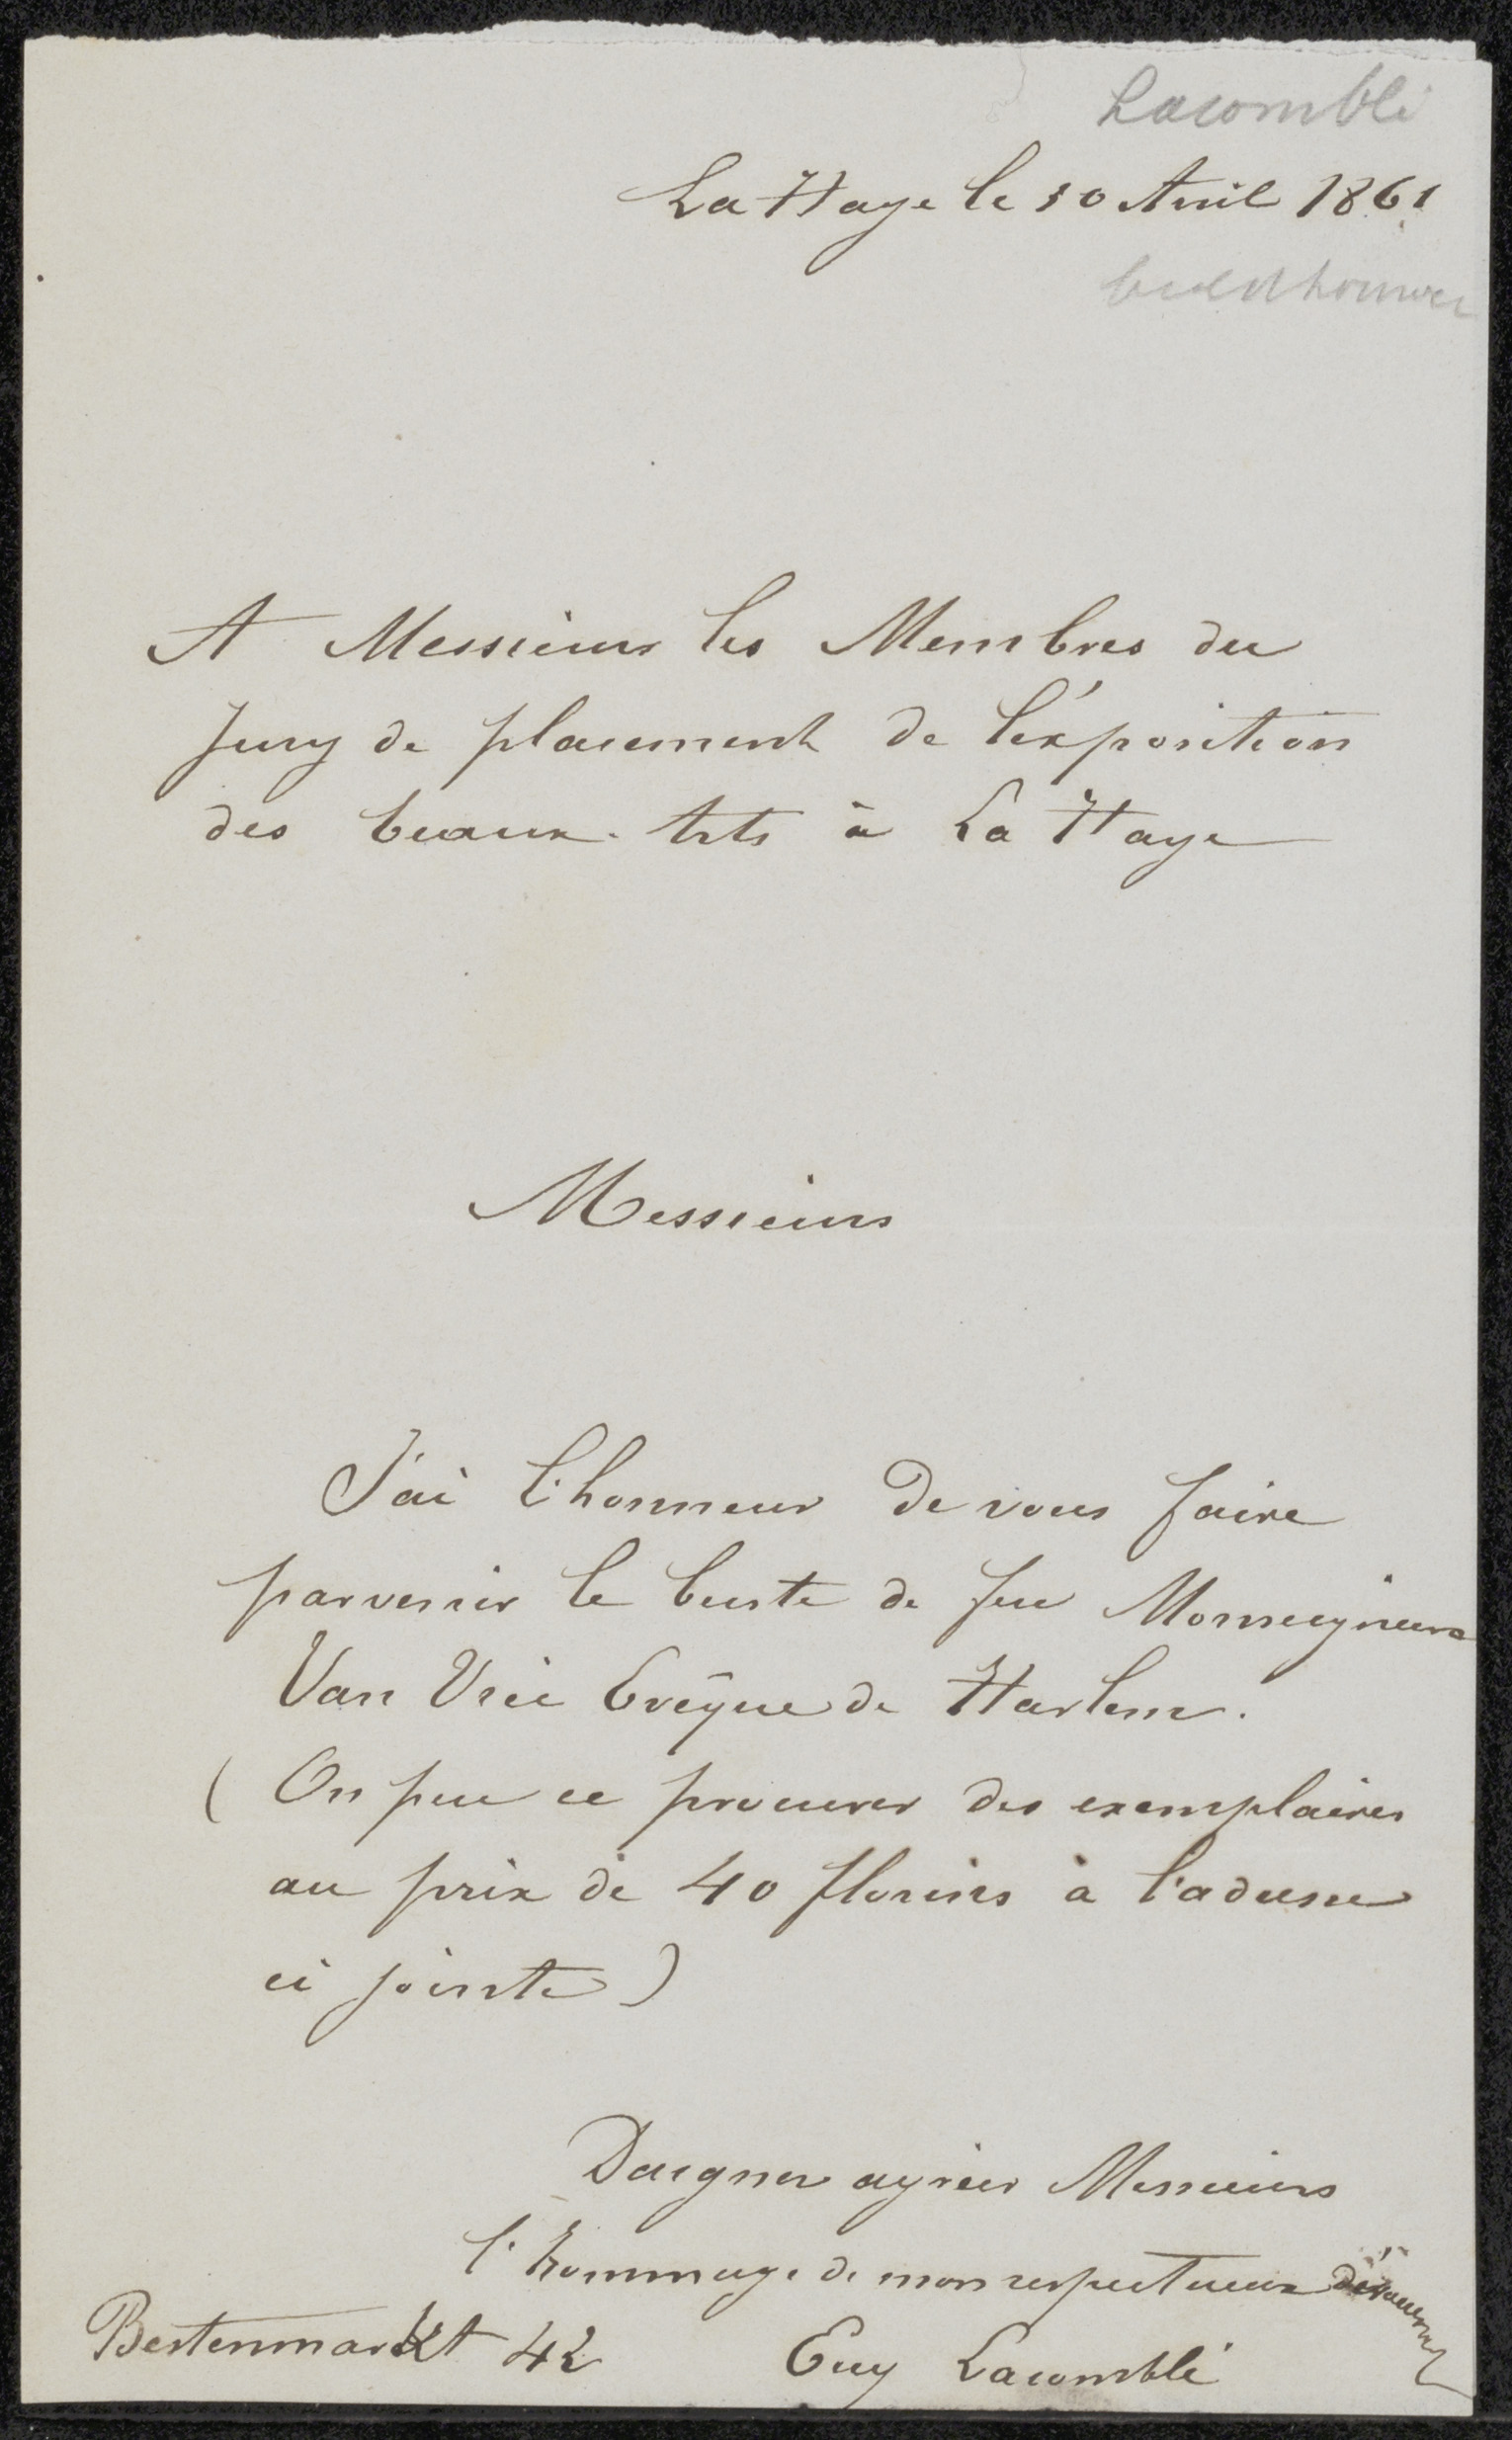 Lacomblé
La Haye le 30 Avril 1861
beeldhouwer
A Messieurs les Membres du
Jury de placement de l'éxposition
des beaux-Arts à La Haye
Messieurs
J'ai l'honneur de vous faire
parvenir le buste de feu Monseigneur
Van Vrée Evêque de Harlem.
( On peu ce procurer des exemplaires
au prix de 40 florins à l'adresse
ci jointe )
Daigner agréer Messieurs
l'hommage de mon respectueux dévouement
Bestenmarkt 42 Eug Lacomblé